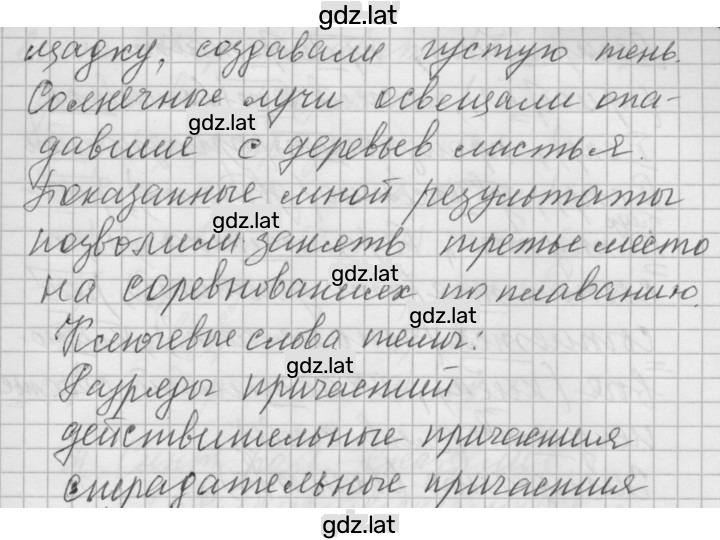 gdz.lat
щадку, создавали густую тень.
Солнечные лучи освещали опа-
gdz.lat
давшие с деревьев листья.
Показанные мной результаты
gdz.lat
позволили занять третье место
на соревнованиях по плаванию.
gdz.lat
gdz.lat
Ключевые слова темы:
gdz.lat
Разряды причастий
действительные причастия
страдательные причастия
gdz.lat